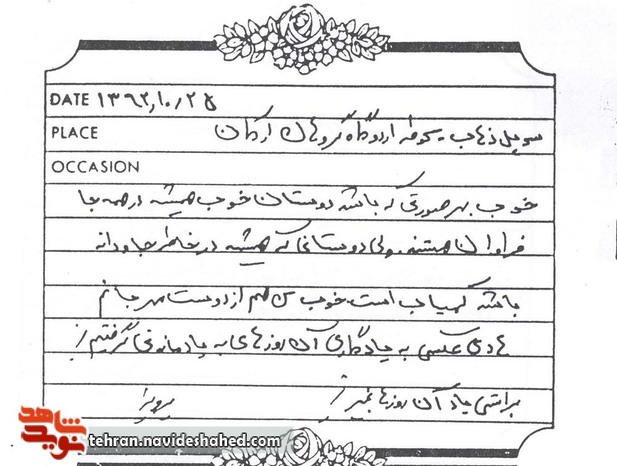 DATE ۱۳۶۲/۱۰/۲۵
PLACE سرپل ذهاب - کوفه اردوگاه گروهان ارکان
OCCASION
خوب بهر صورتی که باشد دوستان خوب همیشه در همه جا
فراوان هستند. ولی دوستانی که همیشه در خاطر جاودانه
باشند کمیاب است. خوب من هم از دوست مهربانم
هادی عکسی به یادگاری آن روزهای به یادماندنی گرفتم
براستی یاد آن روزها بخیر
پرویز
نوید شاهد
tehran.navideshahed.com